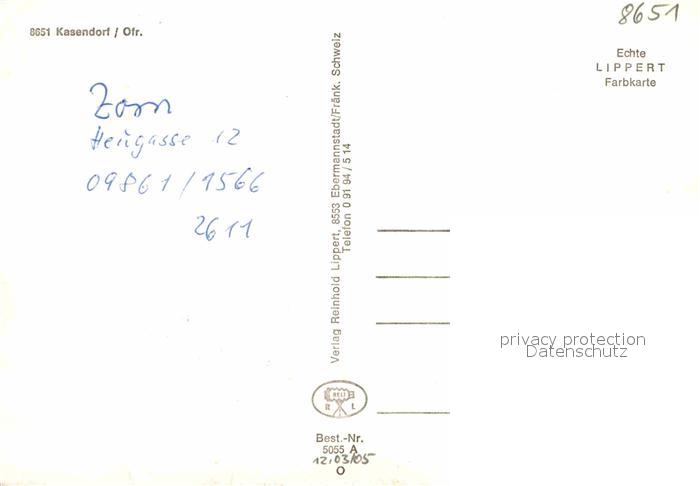 8651 Kasendorf / Ofr.
8651
Echte
LIPPERT
Farbkarte
Zorn
Heugasse 12
09861/1566
2611
Verlag Reinhold Lippert, 8553 Ebermannstadt/Fränk. Schweiz
Telefon 0 91 94 / 5 14
privacy protection
Datenschutz
RELI
R L
Best.-Nr.
5055 A
12.03/05
O